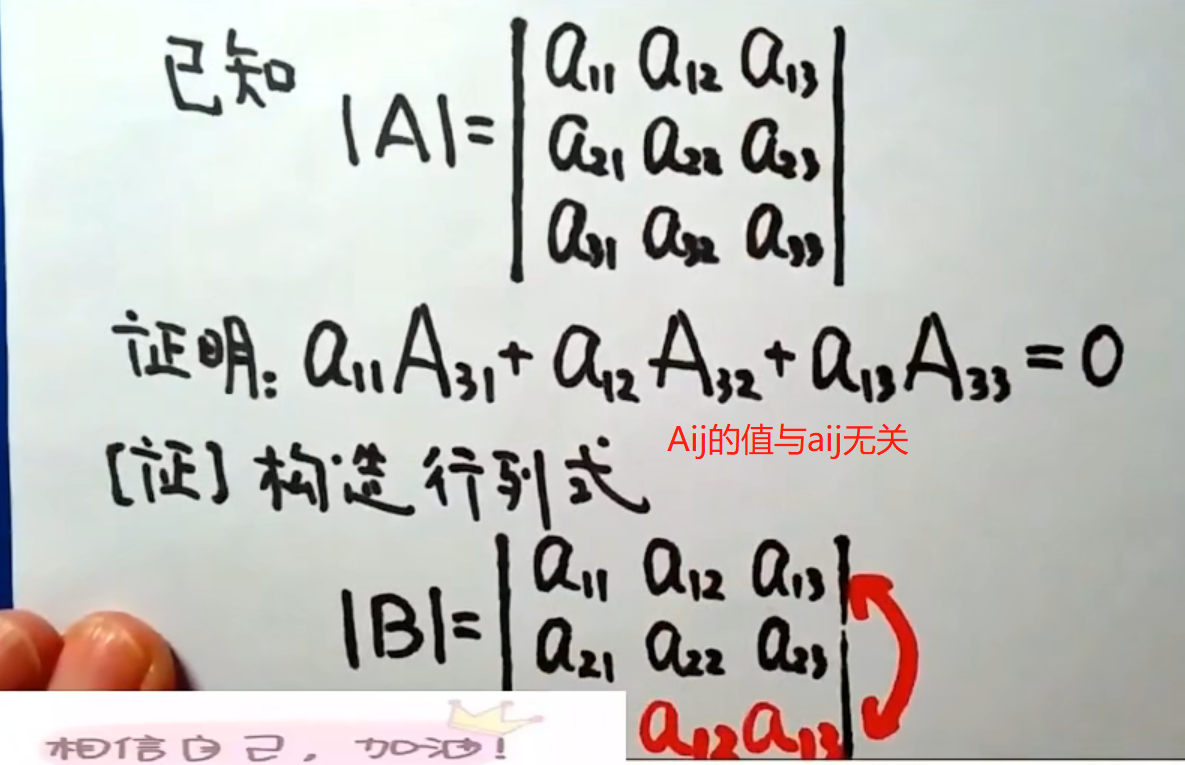 已知
|A|=
a11 a12 a13
a21 a22 a23
a31 a32 a33
证明: a11A31+a12A32+a13A33=0
Aij的值与aij无关
[证] 构造行列式
|B|=
a11 a12 a13
a21 a22 a23
a12 a13
相信自己，加油!